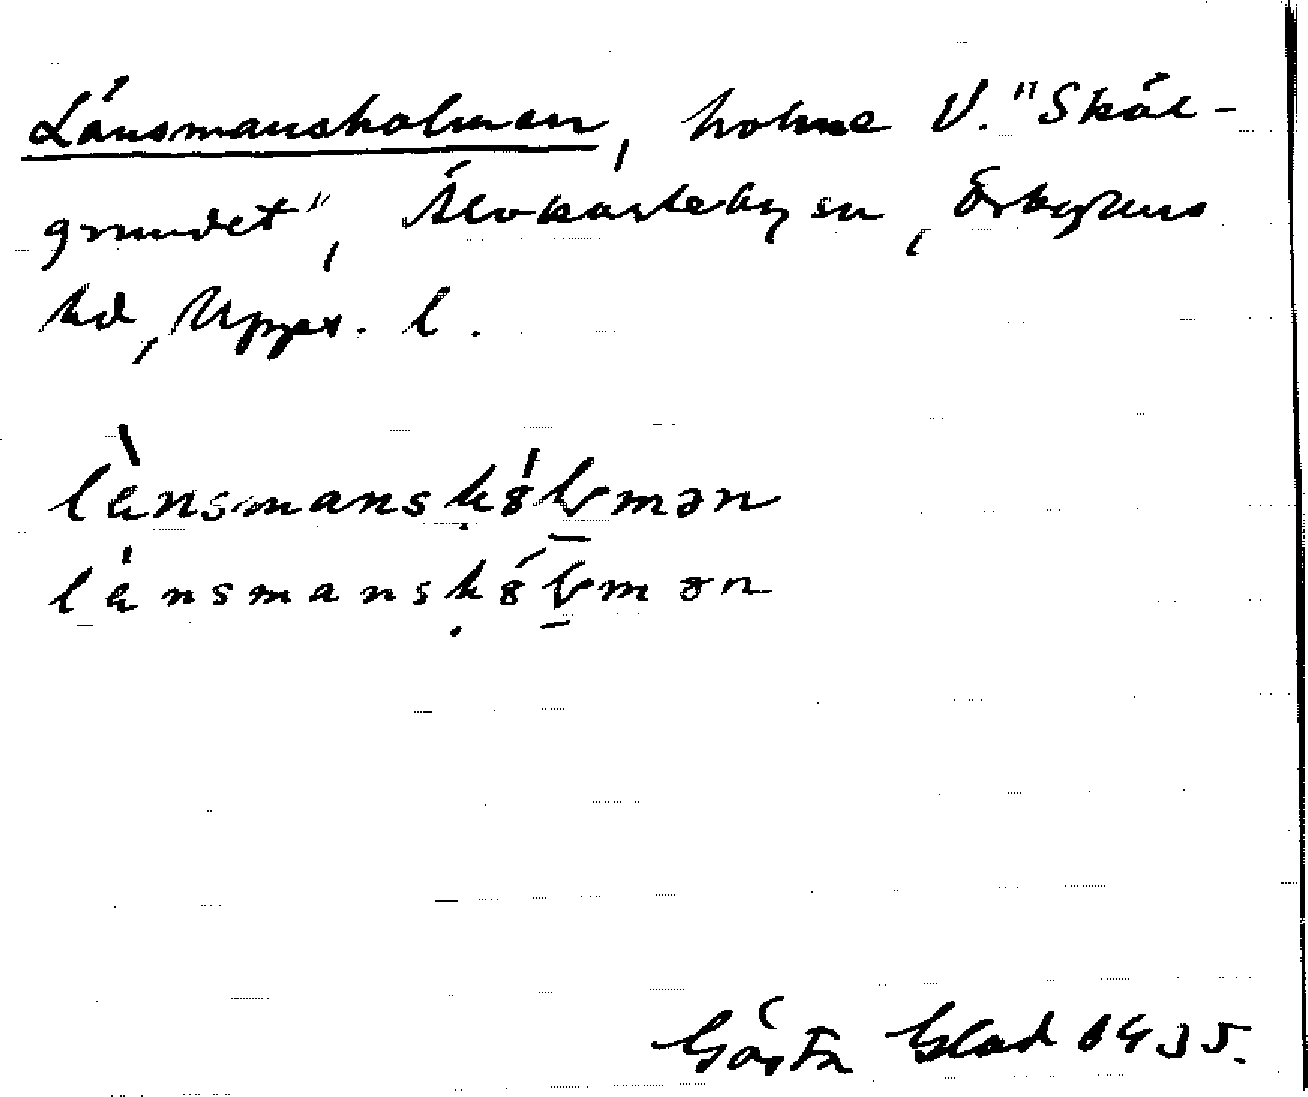 Länsmansholmen, holme V. "Skäl-
grundet", Älvkarleby sn, Örbyhus
hd, Upps. l.
lànsmanskȯ́lmən
lánsmanskȯ́lmən
Gösta Blad 1935.